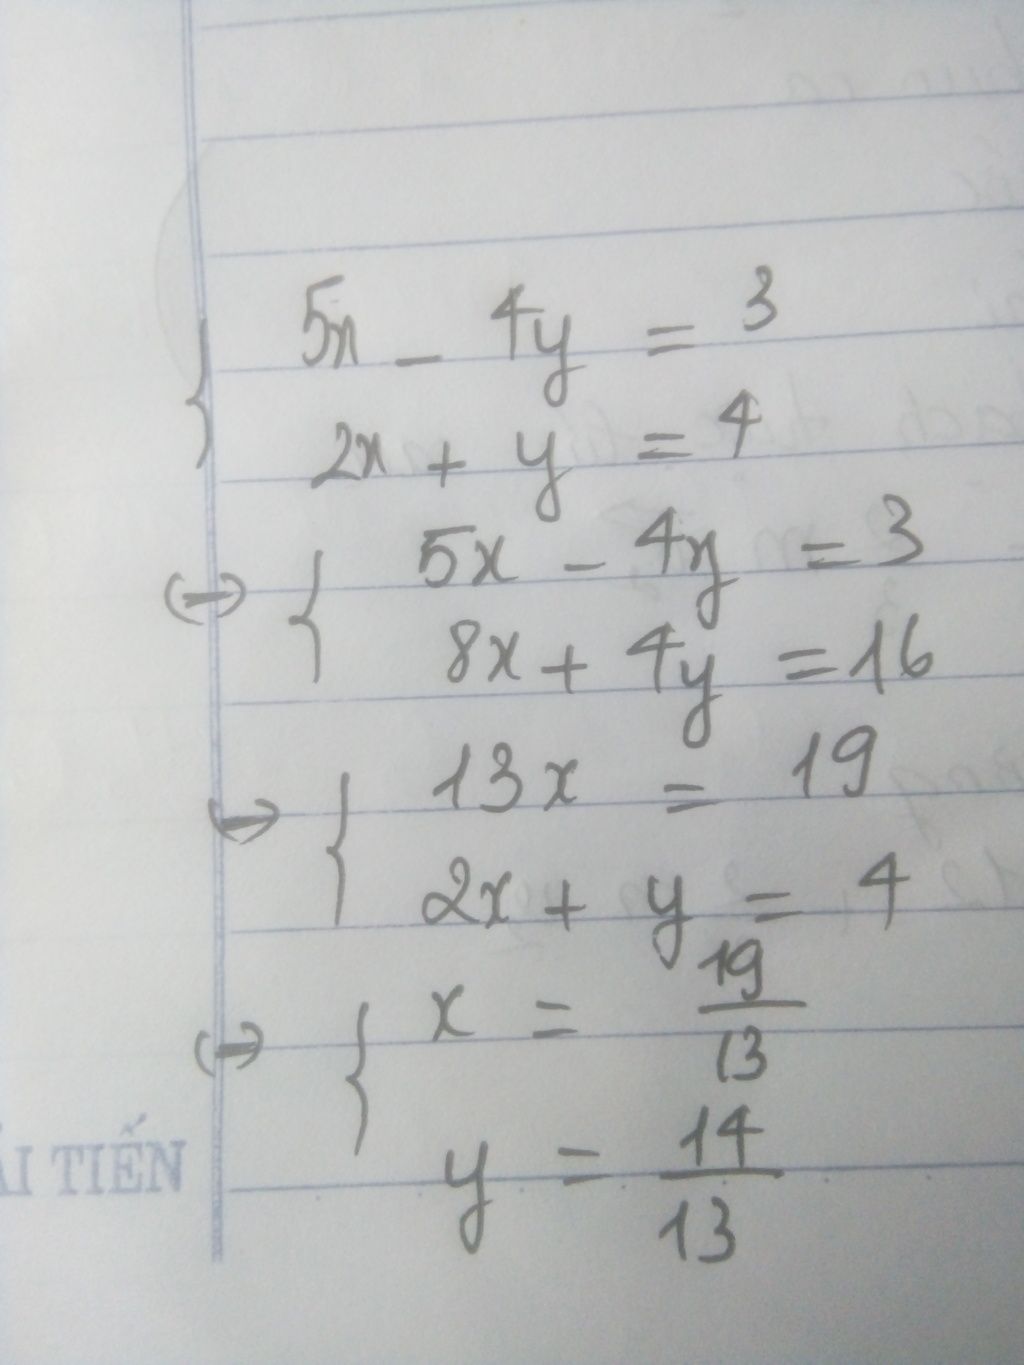 { 5x - 4y = 3
2x + y = 4
(-) { 5x - 4y = 3
8x + 4y = 16
(-) { 13x = 19
2x + y = 4
(-) { x = 19/13
y = 14/13
ẢI TIẾN